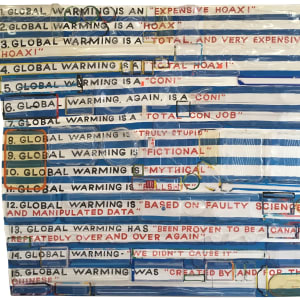 1. GLOBAL WARMING IS AN "EXPENSIVE HOAX!"
2. GLOBAL WARMING IS A "HOAX"
3. GLOBAL WARMING IS A "TOTAL, AND VERY EXPENSIVE
HOAX!"
4. GLOBAL WARMING IS A "TOTAL HOAX!"
5. GLOBAL WARMING IS A "CON!"
6. GLOBAL WARMING, AGAIN, IS A "CON!"
7. GLOBAL WARMING IS A "TOTAL CON JOB"
GLOBAL WARMING IS "TRULY STUPID"
9. GLOBAL WARMING IS "FICTIONAL"
10. GLOBAL WARMING IS "MYTHICAL"
11. GLOBAL WARMING IS
12. GLOBAL WARMING IS "BASED ON FAULTY SCIENCE
AND MANIPULATED DATA"
13. GLOBAL WARMING HAS "BEEN PROVEN TO BE A CANA
REPEATEDLY OVER AND OVER AGAIN"
14. GLOBAL WARMING - "WE DIDN'T CAUSE IT"
15. GLOBAL WARMING WAS "CREATED BY AND FOR TH
CHINESE